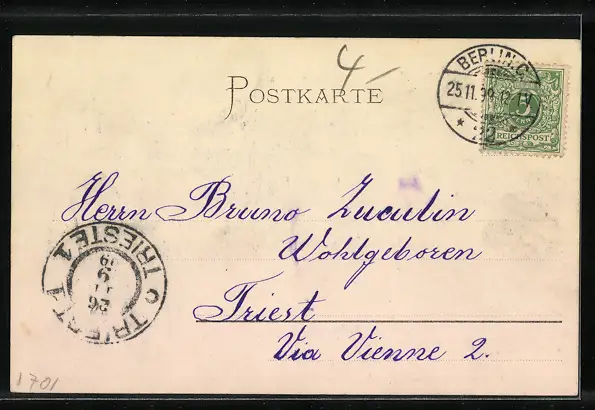 4-
POSTKARTE
BERLIN.C.
25.11.99.12-1V
* 2
5
REICHSPOST
Herrn Bruno Zuculin
Wohlgeboren
Triest
Via Vienne 2.
TRIESTE 1
TRIEST
26
9
1701